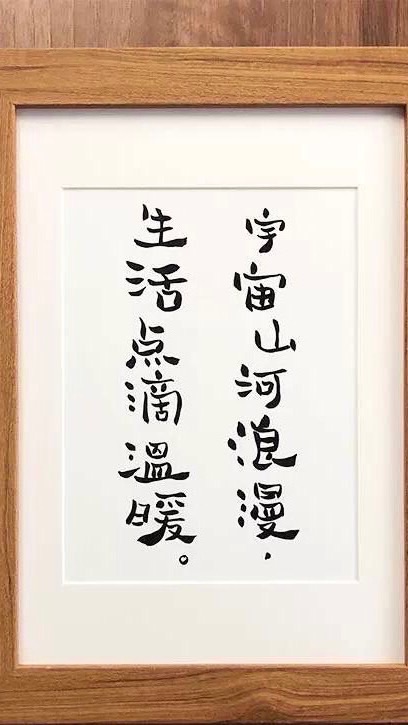 宇宙山河浪漫，
生活点滴溫暖。